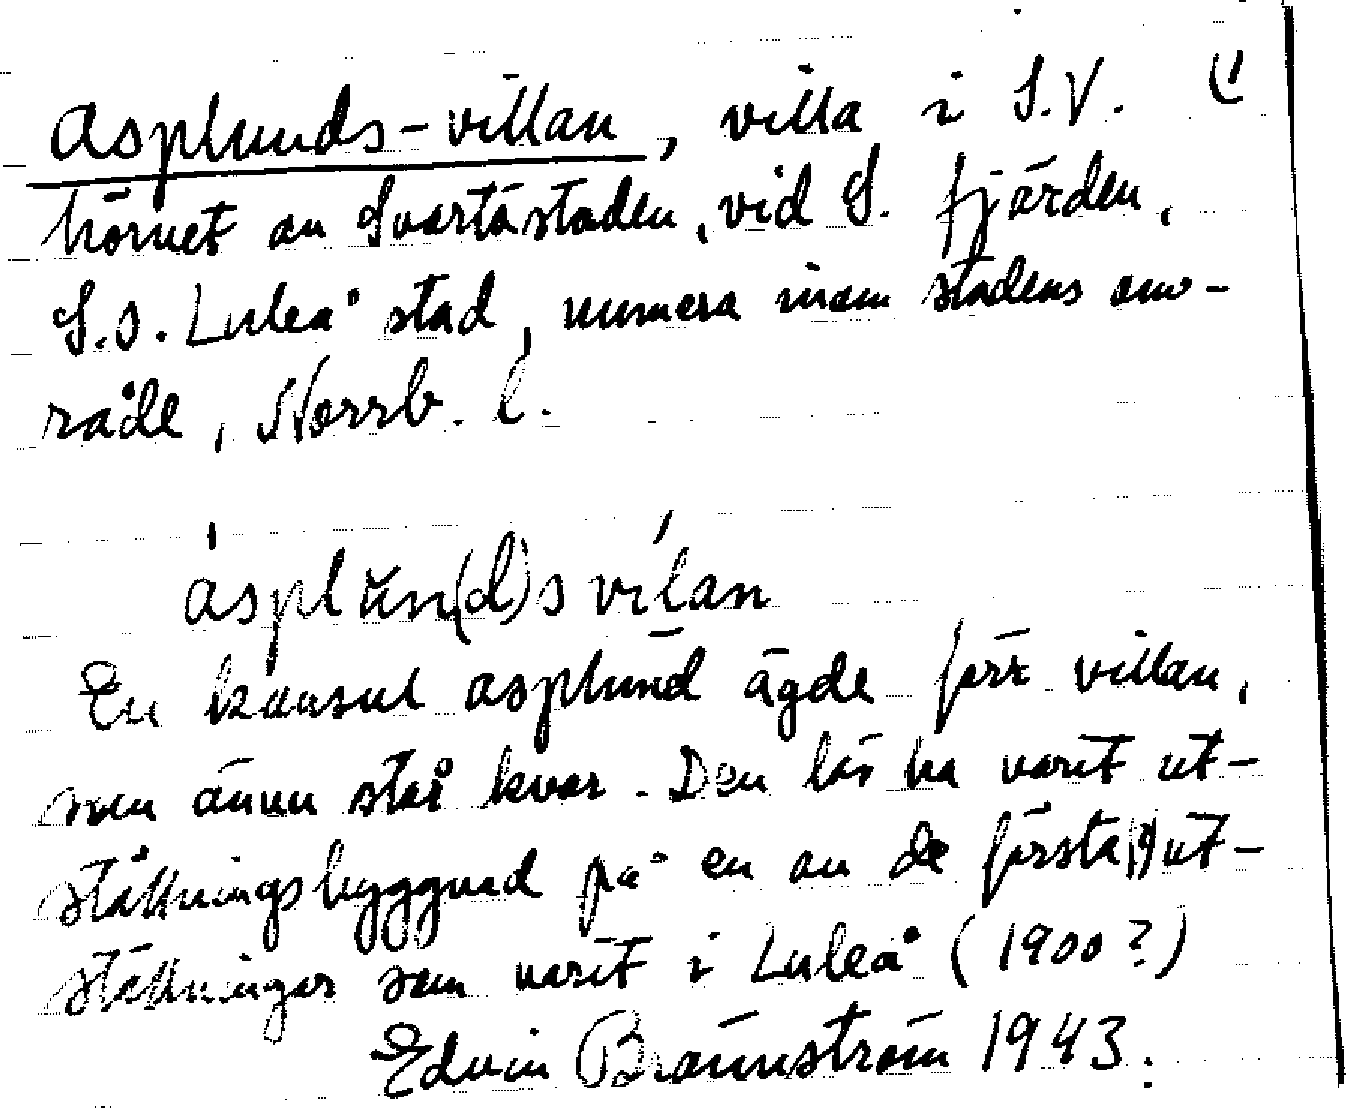 Asplunds-villan, villa i S.V.
hörnet av Svartöstaden, vid S. fjärden,
S.O. Luleå stad, numera inom stadens om-
råde, Norrb. l.
asplŭn(d)s vilan
En konsul Asplund ägde förr villan,
som ännu står kvar. Den lär ha varit ut-
ställningsbyggnad på en av de första ut-
ställningar som varit i Luleå (1900?)
Edvin Brännström 1943.